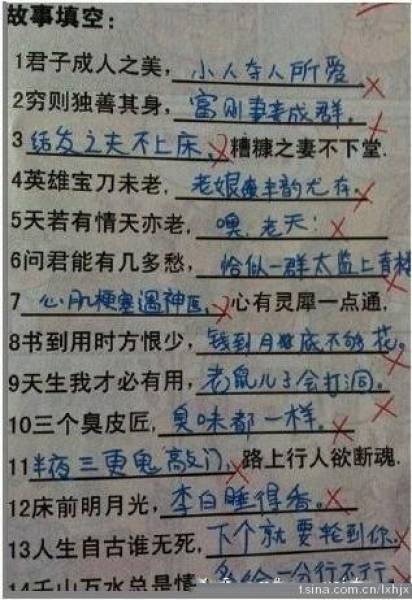 故事填空：
1君子成人之美，小人夺人所爱
2穷则独善其身，富则妻妾成群。
3结发之夫不上床，糟糠之妻不下堂.
4英雄宝刀未老，老娘丰韵尤存。
5天若有情天亦老，噢，老天！
6问君能有几多愁，恰似一群太监上青楼
7心肌梗塞遇神医，心有灵犀一点通，
8书到用时方恨少，钱到月底不够花。
9天生我才必有用，老鼠儿子会打洞。
10三个臭皮匠，臭味都一样。
11半夜三更鬼敲门，路上行人欲断魂.
12床前明月光，李白睡得香。
13人生自古谁无死，下个就要轮到你.
14千山万水总是情，多给一分行不行。
tsina.com.cn/lxhjx